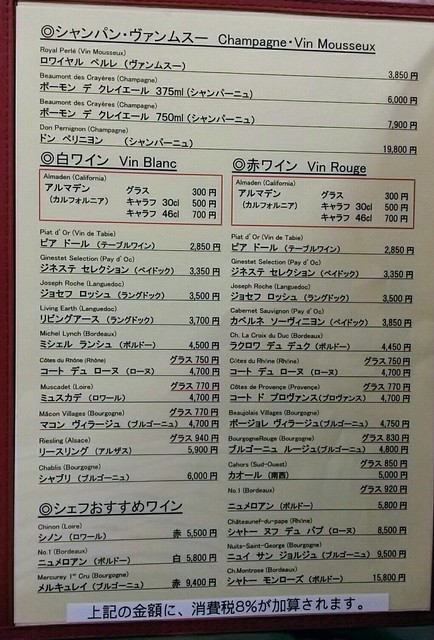 ◎シャンパン・ヴァンムスー Champagne・Vin Mousseux
Royal Perlé (Vin Mousseux)
ロワイヤル ペルレ (ヴァンムスー) 3,850 円
Beaumont des Crayères (Champagne)
ボーモン デ クレイエール 375ml (シャンパーニュ) 6,000 円
Beaumont des Crayères (Champagne)
ボーモン デ クレイエール 750ml (シャンパーニュ) 7,900 円
Don Pernignon (Champagne)
ドン ペリニヨン (シャンパーニュ) 19,800 円
◎白ワイン Vin Blanc
Almaden (California)
アルマデン グラス 300 円
(カルフォルニア) キャラフ 30cl 500 円
キャラフ 46cl 700 円
Piat d' Or (Vin de Table)
ピア ドール (テーブルワイン) 2,850 円
Ginestet Selection (Pay d' Oc)
ジネステ セレクション (ペイドック) 3,350 円
Joseph Roche (Languedoc)
ジョセフ ロッシュ (ラングドック) 3,500 円
Living Earth (Languedoc)
リビングアース (ラングドック) 3,700 円
Michel Lynch (Bordeaux)
ミシェル ランシュ (ボルドー) 4,500 円
Côtes du Rhône (Rhône) グラス 750 円
コート デュ ローヌ (ローヌ) 4,700 円
Muscadet (Loire) グラス 770 円
ミュスカデ (ロワール) 4,700 円
Mâcon Villages (Bourgogne) グラス 770 円
マコン ヴィラージュ (ブルゴーニュ) 4,700 円
Riesling (Alsace) グラス 940 円
リースリング (アルザス) 5,900 円
Chablis (Bourgogne)
シャブリ (ブルゴーニュ) 6,000 円
◎シェフおすすめワイン
Chinon (Loire)
シノン (ロワール) 赤 5,500 円
No.1 (Bordeaux)
ニュメロアン (ボルドー) 白 5,800 円
Mercurey 1er Cru (Bourgogne)
メルキュレイ (ブルゴーニュ) 赤 9,400 円
◎赤ワイン Vin Rouge
Almaden (California)
アルマデン グラス 300 円
(カルフォルニア) キャラフ 30cl 500 円
キャラフ 46cl 700 円
Piat d' Or (Vin de Table)
ピア ドール (テーブルワイン) 2,850 円
Ginestet Selection (Pay d' Oc)
ジネステ セレクション (ペイドック) 3,350 円
Joseph Roche (Languedoc)
ジョセフ ロッシュ (ラングドック) 3,500 円
Cabernet Sauvignon (Pay d' Oc)
カベルネ ソーヴィニヨン (ペイドック) 3,850 円
Ch. La Croix du Duc (Bordeaux)
ラクロワ デュ デュク (ボルドー) 4,450 円
Côtes du Rhône (Rhône) グラス 750 円
コート デュ ローヌ (ローヌ) 4,700 円
Côtes de Provence (Provence) グラス 770 円
コート ド プロヴァンス(プロヴァンス) 4,700 円
Beaujolais Villages (Bourgogne)
ボージョレ ヴィラージュ(ブルゴーニュ) 4,750 円
BourgogneRouge (Bourgogne) グラス 830 円
ブルゴーニュ ルージュ(ブルゴーニュ) 4,800 円
Cahors (Sud-Ouest) グラス 850 円
カオール (南西) 5,000 円
No.1 (Bordeaux) グラス 920 円
ニュメロアン (ボルドー) 5,800 円
Châteaunef-du-pape (Rhône)
シャトー ヌフ デュ パプ (ローヌ) 8,500 円
Nuits-Saint-George (Bourgogne)
ニュイ サン ジョルジュ (ブルゴーニュ) 9,500 円
Ch.Montrose (Bordeaux)
シャトー モンローズ (ボルドー) 15,800 円
上記の金額に、消費税8%が加算されます。